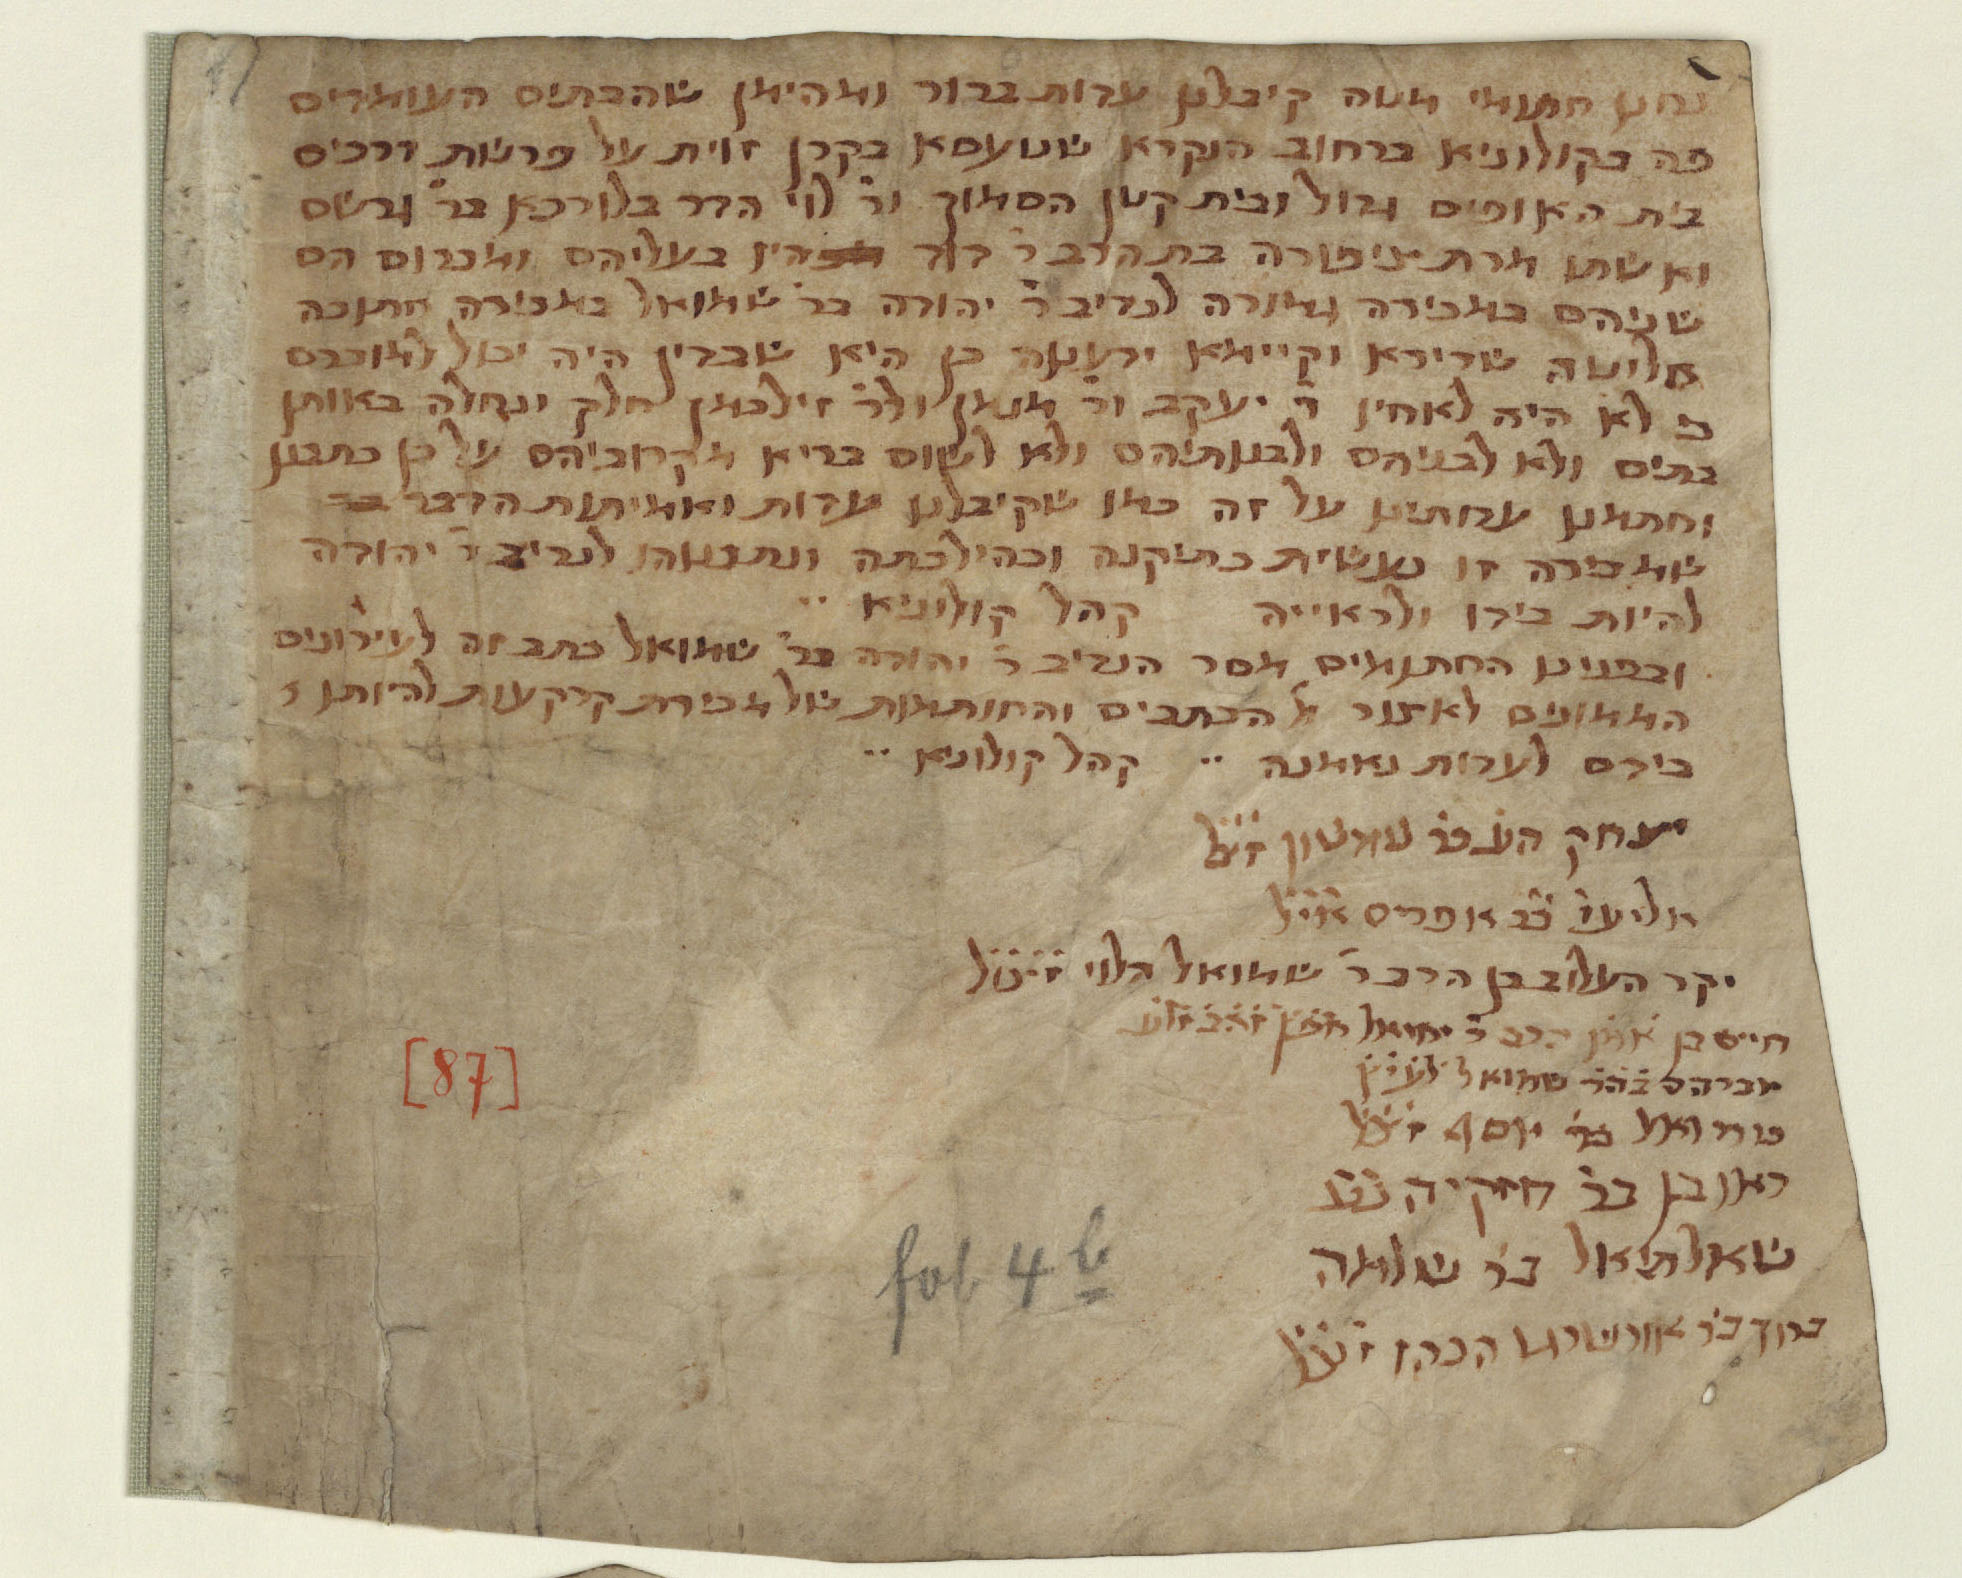 נחנו חתומי מטה קיבלנו עדות ברור ומהימן שהבתים העומדים
פה בקולוניא ברחוב הנקרא שטעסא בקרן זוית על פרשת דרכים
בית האופים גדול ובית קטן הסמוך ור' לוי הדר בלורכא בר' גרשם
ואשתו מרת ציפורה בת הרב ר' דוד היו בעליהם ומכרום הם
שניהם במכירה גמורה לנדיב ר' יהודה בר' שמואל במכירה חתוכה
חליטה שרירא וקיימא ידענוה כן היא שבדין היה יכול למוכרם
כ לא היה לאחיו ר' יעקב ור' מנמן ולר' זילכמן חלק ונחלה באותן
בתים ולא לבניהם ולבנותיהם ולא לשום בריא מקרוביהם על כן כתבנו
וחתמנו עדותינו על זה כמו שקיבלנו עדות ואמיתות הדבר
שמכירה זו נעשית כתיקנה וכהילכתה ונתננוהו לנדיב ר' יהודה
להיות בידו ולראייה קהל קולוניא
ובפנינו החתומים מסר הנדיב ר' יהודה בר' שמואל כתב זה לעירונים
הממונים לאצור הכתבים והחותמות של מכירת קרקעות להיותו
בידם לעדות נאמנה קהל קולוניא
יצחק בר' שמשון זצ"ל
אליעז' בר' אפרים
יקר העלוב בן הרב ר' שמואל הלוי זצ"ל
חיים בן הרב ר' יחיאל
אברהם שמואל
בר' יוסף זצ"ל
ראובן בר' חזקיה
שאלתיאל בר' שלמה
ברוך בר' אורשרגו הכהן זצ"ל
[87]
fol 4 b